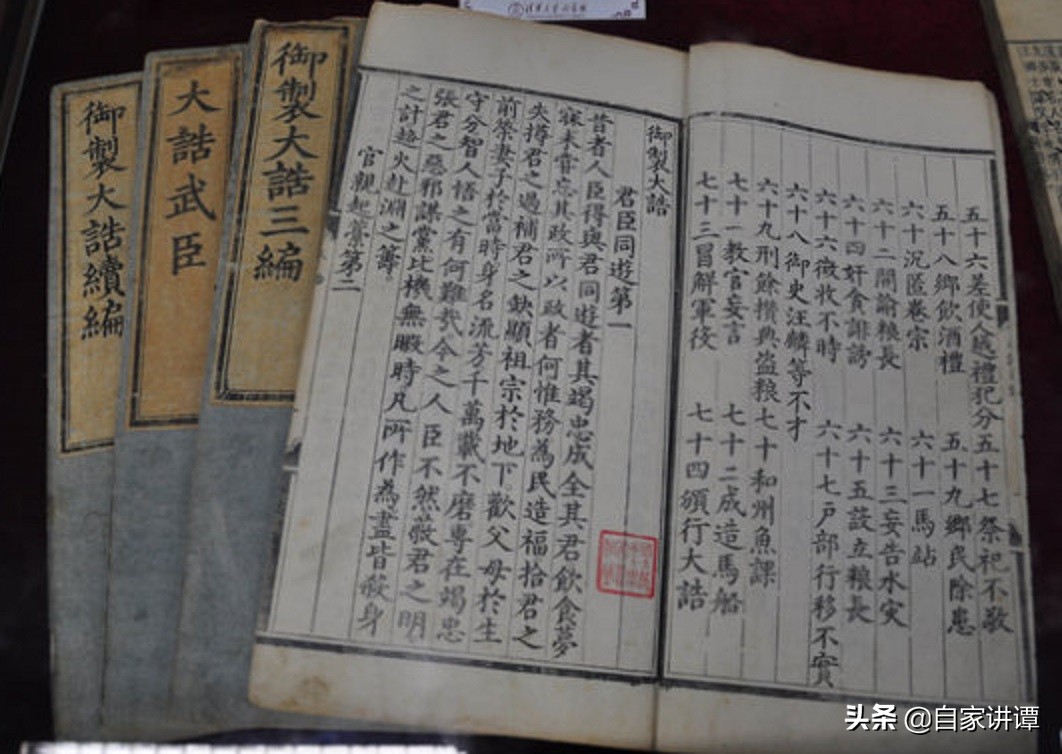 御製大誥續編
大誥武臣
御製大誥三編
五十六差使人越禮犯分 五十七祭祀不敬
五十八鄉飲酒禮 五十九鄉民除患
六十沉匿卷宗 六十一馬站
六十二開諭粮長 六十三妄告水灾
六十四奸貪誹謗 六十五設立粮長
六十六徵收不時 六十七戶部行移不實
六十八御史汪麟等不才
六十九刑餘攢典盜粮 七十和州魚課
七十一教官妄言 七十二成造馬船
七十三冒解軍役 七十四頒行大誥
御製大誥
君臣同遊第一
昔者人臣得與君同遊者其竭忠成全其君飲食夢
寐未嘗忘其政所以政者何惟務為民造福拾君之
失撙君之過補君之缺顯祖宗於地下歡父母於生
前榮妻子於當時身名流芳千萬載不磨專在竭忠
守分智人悟之有何難哉今之人臣不然蔽君之明
張君之惡邪謀黨比機無暇時凡所作為盡皆殺身
之計趨火赴淵之籌
官親起藁第二
头条 @自家讲谭